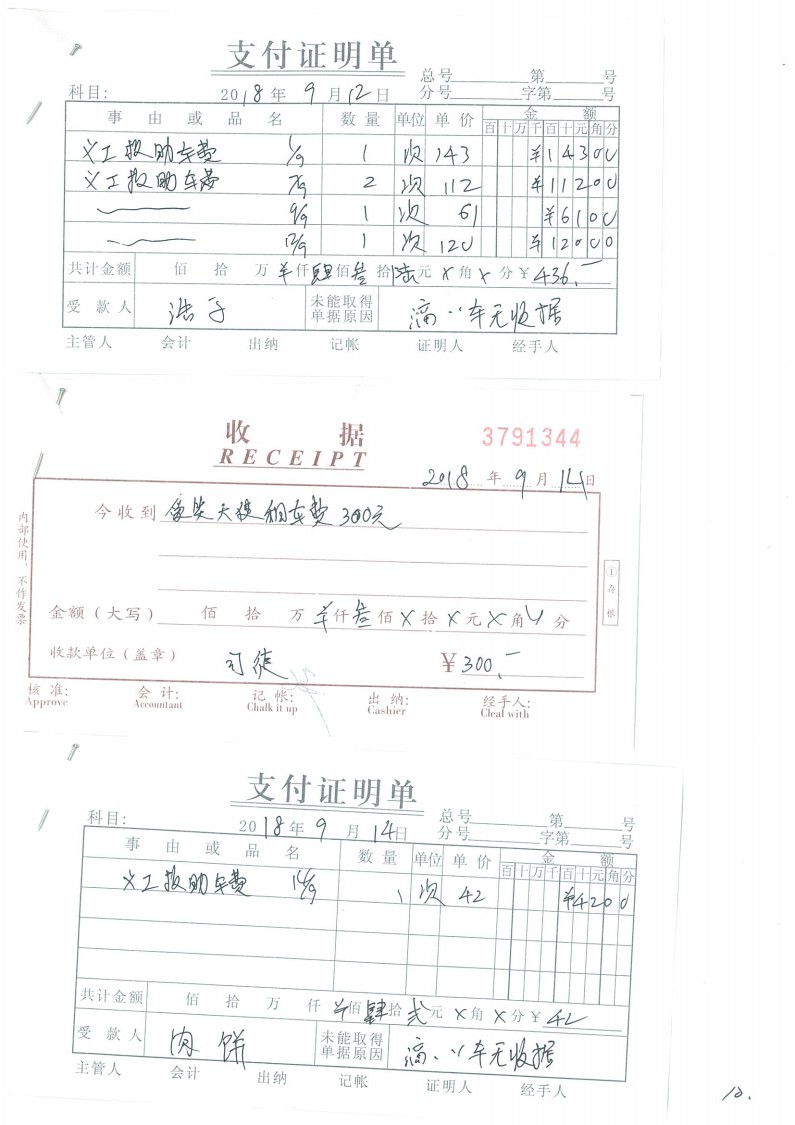 支付证明单
总号 第 号
科目: 2018年9月12日 分号 字第 号
事由或品名 数量 单位 单价 金额
百十万千百十元角分
义工救助车费 1/9 1 次 143 ¥14300
义工救助车费 7/9 2 次 112 ¥11200
9/9 1 次 61 ¥6100
12/9 1 次 120 ¥12000
共计金额 佰 拾 万 ¥仟肆佰叁拾陆元X角X分¥436.-
受款人 浩子 未能取得单据原因 滴..车无收据
主管人 会计 出纳 记帐 证明人 经手人
收据
3791344
RECEIPT
2018年9月14日
今收到 微笑天使租车费300元
内部使用,不作发票
①存根
金额(大写) 佰 拾 万 ¥仟叁佰X拾X元X角X分
收款单位(盖章) 司徒 ¥300.-
核准: 会计: 记帐: 出纳: 经手人:
Approve Accountant Chalk it up Cashier Cleal with
支付证明单
总号 第 号
科目: 2018年9月14日 分号 字第 号
事由或品名 数量 单位 单价 金额
百十万千百十元角分
义工救助车费 14/9 1 次 42 ¥4200
共计金额 佰 拾 万 仟 ¥佰肆拾贰元X角X分¥42
受款人 肉饼 未能取得单据原因 滴..车无收据
主管人 会计 出纳 记帐 证明人 经手人
10.